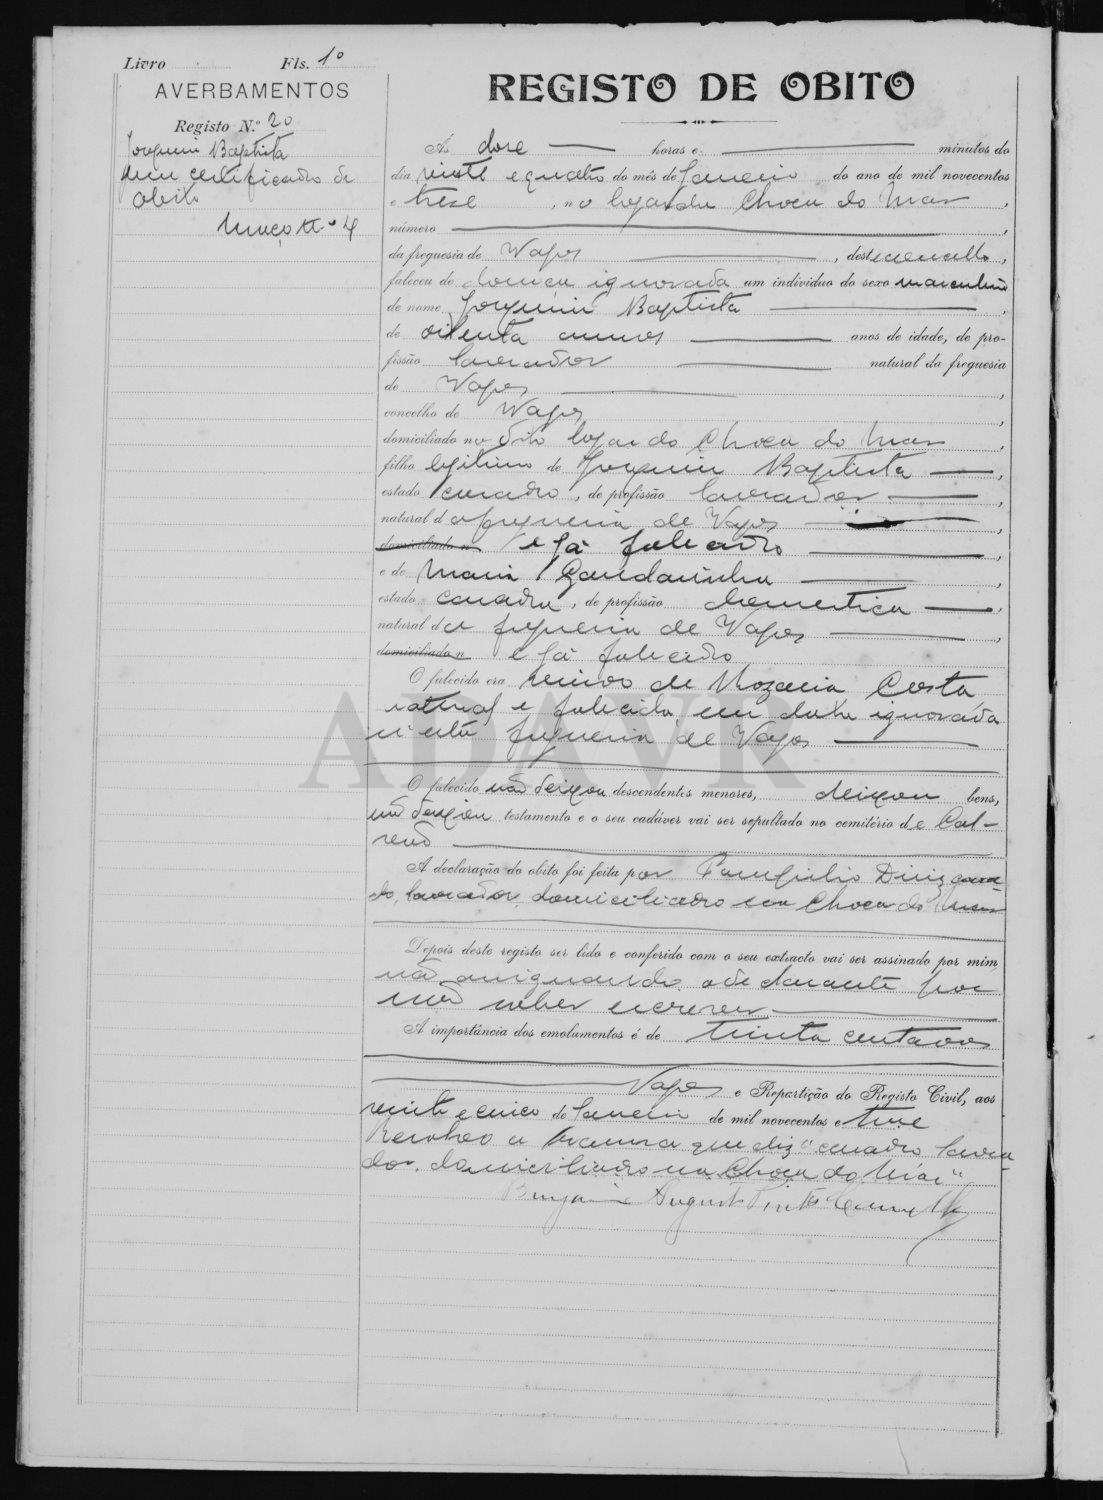 Livro Fls. 1º
AVERBAMENTOS
Registo N.º 20
Joaquim Baptista
certificado de
obito
Maço nº 4
REGISTO DE OBITO
Ás doze horas e minutos do
dia vinte e quatro do mês de Janeiro do ano de mil novecentos
e treze, no logar da Choca do Mar,
número,
da freguesia de Vagos, deste concelho,
faleceu de doença ignorada um individuo do sexo masculino
de nome Joaquim Baptista,
de oitenta annos anos de idade, de pro-
fissão lavrador natural da freguesia
de Vagos,
concelho de Vagos,
domiciliado no dito logar da Choca do Mar,
filho legitimo de Joaquim Baptista,
estado casado, de profissão lavrador,
natural da freguesia de Vagos,
domiciliado n e já falecido,
e de Maria Gandarinha,
estado casada, de profissão domestica,
natural da freguesia de Vagos,
domiciliada n e já falecida
O falecido era viuvo de Rozaria Costa
natural e falecida em data ignorada
n'esta freguesia de Vagos
ADAVR
O falecido não deixou descendentes menores, deixou bens,
não deixou testamento e o seu cadáver vai ser sepultado no cemitério de Cal-
vão
A declaração do obito foi feita por Pampilio Diniz casa-
do, lavrador, domiciliado na Choca do Mar
Depois deste registo ser lido e conferido com o seu extracto vai ser assinado por mim
não assignando o declarante por
não saber escrever
A importância dos emolumentos é de trinta centavos
Vagos e Repartição do Registo Civil, aos
vinte e cinco de Janeiro de mil novecentos e treze
Resalvo a que diz "casado lavra-
dor, domiciliado na Choca do Mar"
Benjamim Augusto Pinto